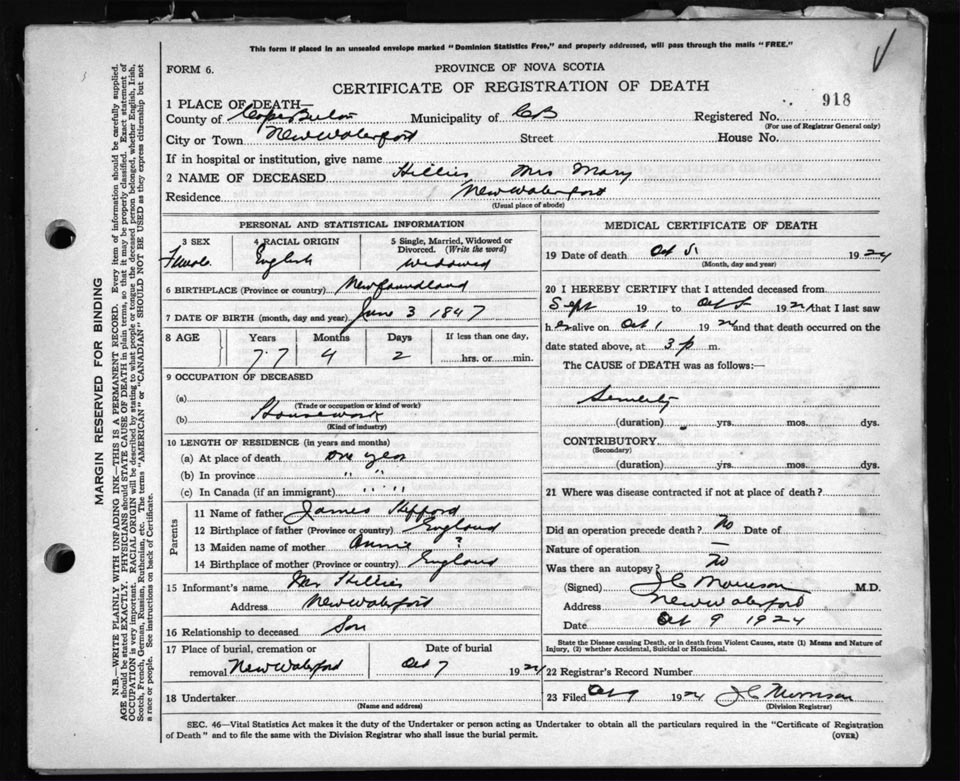 This form if placed in an unsealed envelope marked "Dominion Statistics Free," and properly addressed, will pass through the mails "FREE."
FORM 6.
PROVINCE OF NOVA SCOTIA
CERTIFICATE OF REGISTRATION OF DEATH
918
1 PLACE OF DEATH—
County of Cape Breton Municipality of CB Registered No.
(For use of Registrar General only)
City or Town New Waterford Street House No.
If in hospital or institution, give name
2 NAME OF DECEASED Hillier Mrs Mary
Residence New Waterford
(Usual place of abode)
PERSONAL AND STATISTICAL INFORMATION
3 SEX 4 RACIAL ORIGIN 5 Single, Married, Widowed or Divorced. (Write the word)
Female English Widowed
6 BIRTHPLACE (Province or country) Newfoundland
7 DATE OF BIRTH (month, day and year) June 3 1847
8 AGE Years Months Days If less than one day,
77 4 2 hrs. or min.
9 OCCUPATION OF DECEASED
(a)
(Trade or occupation or kind of work)
(b) Housework
(Kind of industry)
10 LENGTH OF RESIDENCE (in years and months)
(a) At place of death one year
(b) In province " "
(c) In Canada (if an immigrant) " " "
Parents
11 Name of father James
12 Birthplace of father (Province or country) England
13 Maiden name of mother Annie ?
14 Birthplace of mother (Province or country) England
15 Informant's name Hillier
Address New Waterford
16 Relationship to deceased Son
17 Place of burial, cremation or Date of burial
removal New Waterford Oct 7 1924
18 Undertaker
(Name and address)
MEDICAL CERTIFICATE OF DEATH
19 Date of death Oct 5 1924
(Month, day and year)
20 I HEREBY CERTIFY that I attended deceased from
Sept 19 to Oct 5 1924 that I last saw
her alive on Oct 1 1924 and that death occurred on the
date stated above, at 3 p m.
The CAUSE of DEATH was as follows:—
(duration) yrs. mos. dys.
CONTRIBUTORY.
(Secondary)
(duration) yrs. mos. dys.
21 Where was disease contracted if not at place of death?
Did an operation precede death? No Date of
Nature of operation —
Was there an autopsy? No
(Signed) J C Morrison M.D.
Address New Waterford
Date Oct 9 1924
State the Disease causing Death, or in death from Violent Causes, state (1) Means and Nature of
Injury, (2) whether Accidental, Suicidal or Homicidal.
22 Registrar's Record Number
23 Filed Oct 9 1924 J C Morrison
(Division Registrar)
SEC. 46—Vital Statistics Act makes it the duty of the Undertaker or person acting as Undertaker to obtain all the particulars required in the "Certificate of Registration
of Death" and to file the same with the Division Registrar who shall issue the burial permit.
(OVER)
MARGIN RESERVED FOR BINDING
N.B.—WRITE PLAINLY WITH UNFADING INK—THIS IS A PERMANENT RECORD. Every item of information should be carefully supplied.
AGE should be stated EXACTLY. PHYSICIANS should STATE CAUSE OF DEATH in plain terms, so that it may be properly classified. Exact statement of
OCCUPATION is very important. RACIAL ORIGIN will be described by stating to what people or tongue the deceased person belonged, whether English, Irish,
Scotch, French, German, Russian, Ruthenian, etc. The terms "AMERICAN" or "CANADIAN" SHOULD NOT BE USED as they express citizenship but not
a race or people. See instructions on back of Certificate.